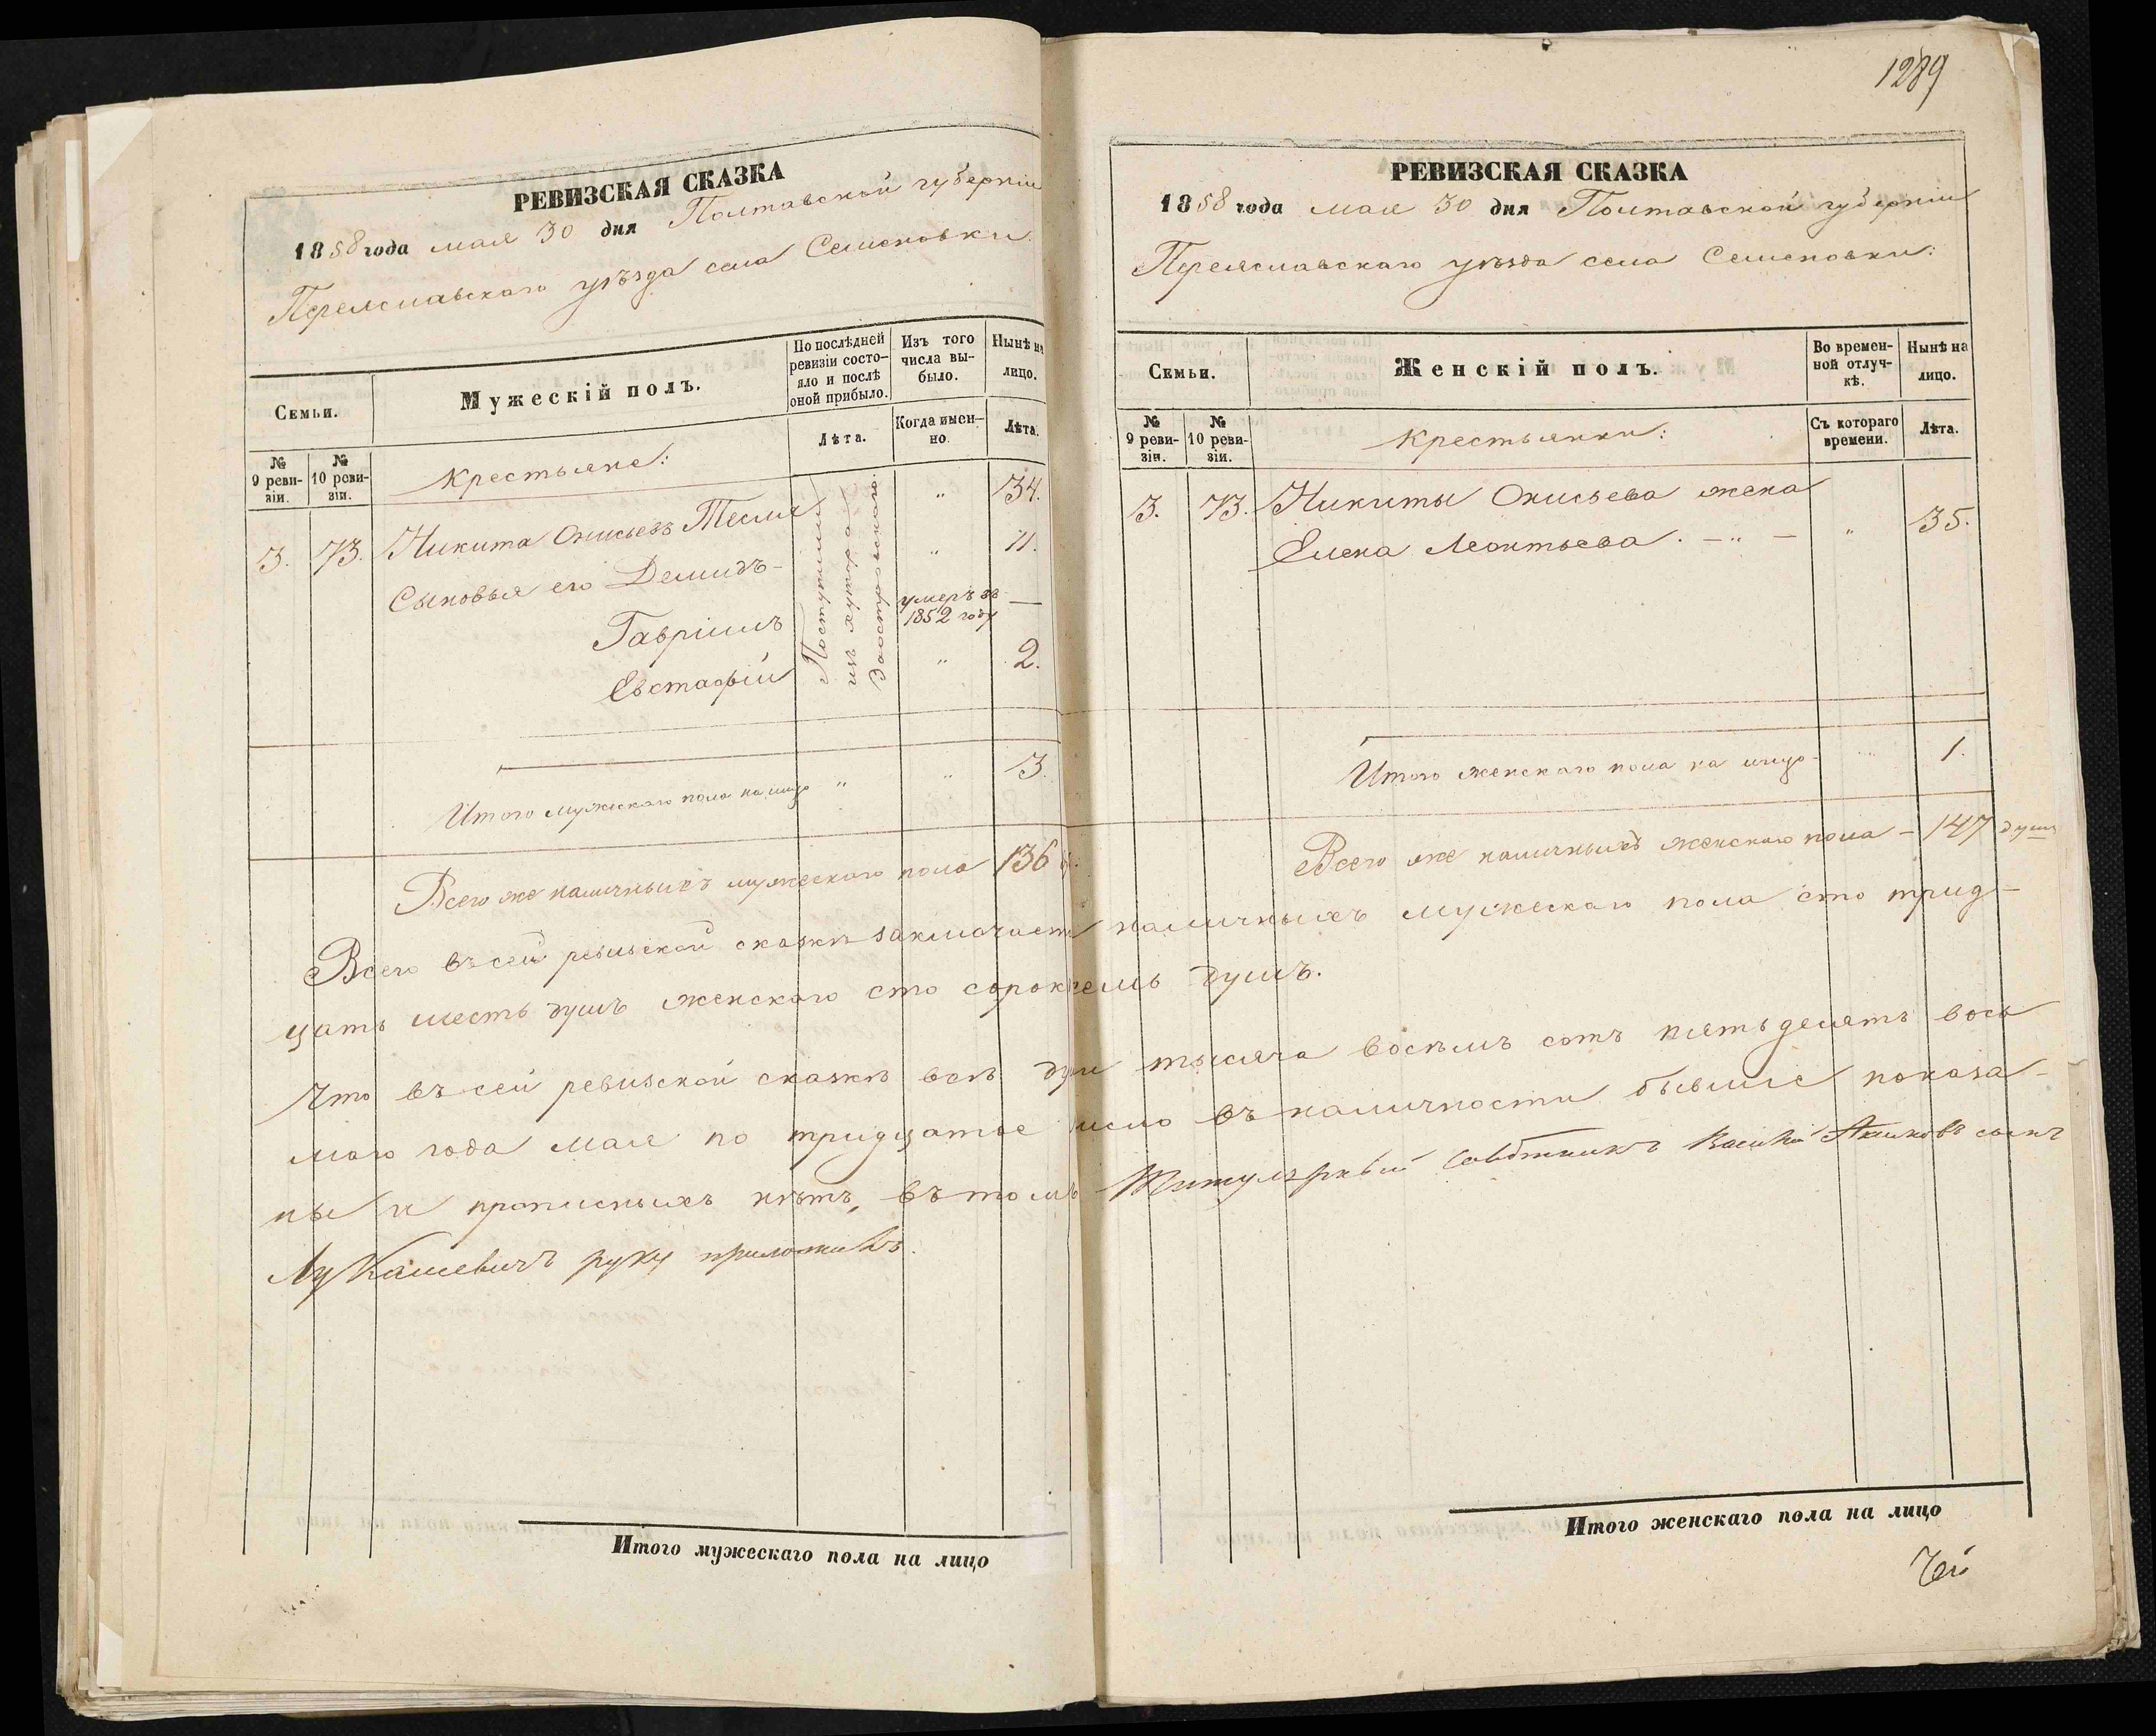 1289
РЕВИЗСКАЯ СКАЗКА
1858 года мая 30 дня Полтавской губерніи
Переяславскаго уѣзда села Семеновки.
Семьи.
Мужескій полъ.
По послѣдней ревизіи состояло и послѣ оной прибыло.
Изъ того числа выбыло.
Нынѣ на лицо.
№ 9 ревизіи.
№ 10 ревизіи.
Крестьяне:
Лѣта.
Когда именно.
Лѣта.
3. 73. Никита Онисьевъ Тесля " 34.
Сыновья его Демидъ - " 11.
Гавріилъ умеръ въ 1852 году —
Евстафій " 2.
Поступили
изъ хутора
Итого мужескаго пола на лицо " " 3.
Всего же наличныхъ мужескаго пола 136
РЕВИЗСКАЯ СКАЗКА
1858 года мая 30 дня Полтавской губерніи
Переяславскаго уѣзда села Семеновки:
Семьи.
Женскій полъ.
Во временной отлучкѣ.
Нынѣ на лицо.
№ 9 ревизіи.
№ 10 ревизіи.
Крестьянки:
Съ котораго времени.
Лѣта.
3. 73. Никиты Онисьева жена
Елена Леонтьева. — " — " 35.
Итого женскаго пола на лицо - 1.
Всего же наличныхъ женскаго пола - 147 душъ
Всего въ сей ревизской сказкѣ заключается наличныхъ мужескаго пола сто трид-
цать шесть душъ женскаго сто сорокъ семь душъ.
Что въ сей ревизской сказкѣ всѣ души тысяча восемь сотъ пятьдесятъ вось
маго года мая по тридцатое число въ наличности бывшіе показа-
ны и прописныхъ нѣтъ, въ томъ Титулярный Совѣтникъ Василій Акимовъ сынъ
Лукашевичъ руку приложилъ.
Итого мужескаго пола на лицо
Итого женскаго пола на лицо